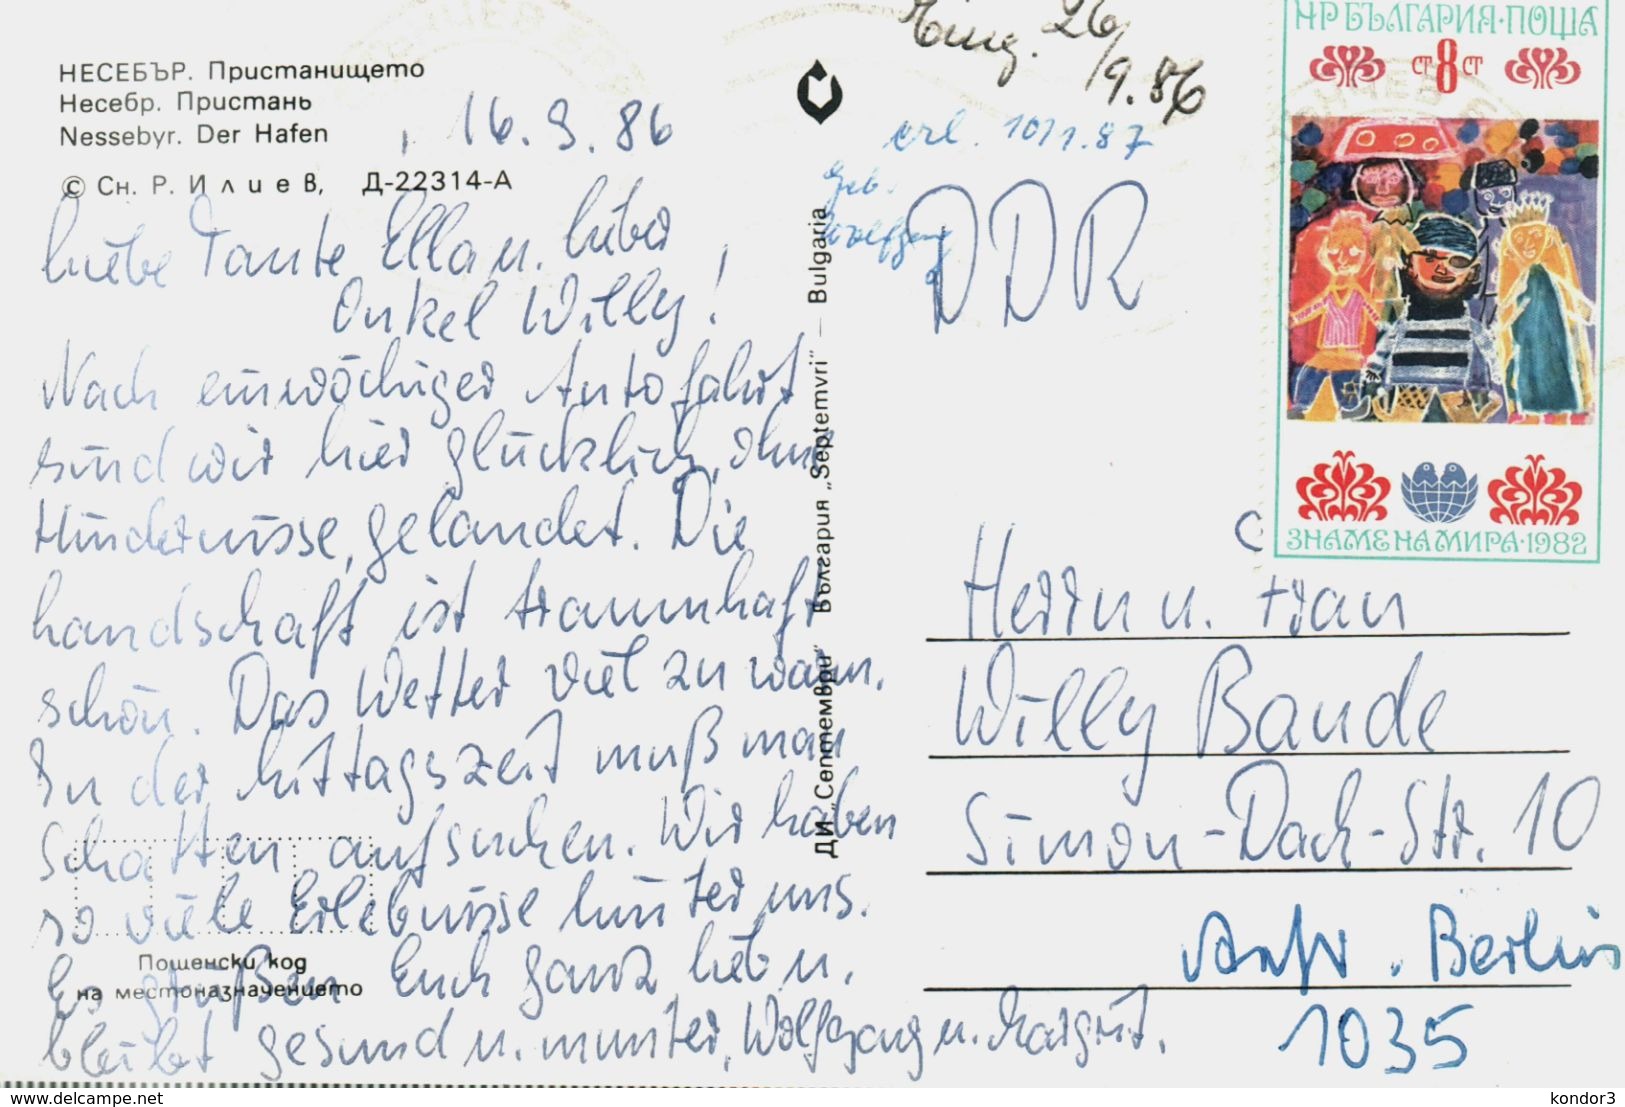 НЕСЕБЪР. Пристанището
Несебр. Пристань
Nessebyr. Der Hafen
© Сн. Р. Илиев, Д-22314-А
, 16. 9. 86
Liebe Tante Ella u. lieber
Onkel Willy!
Nach einwöchiger Autofahrt
sind wir hier glücklich, ohne
Hindernisse, gelandet. Die
Landschaft ist traumhaft
schön. Das Wetter viel zu warm.
In der Mittagszeit muß man
Schatten aufsuchen. Wir haben
so viele Erlebnisse hinter uns.
Es grüßen Euch ganz lieb u.
bleibt gesund u. munter, Wolfgang u. Margrit.
Пощенски код
на местоназначението
ДИ „Септември" България „Septemvri" — Bulgaria
Eing. 26/9.86
erl. 10/1.87
Geb.
Wolfgang
DDR
НР БЪЛГАРИЯ·ПОЩА
СТ 8 СТ
ЗНАМЕ НА МИРА·1982
Herrn u. Frau
Willy Baude
Simon-Dach-Str. 10
Berlin
1035
www.delcampe.net
kondor3